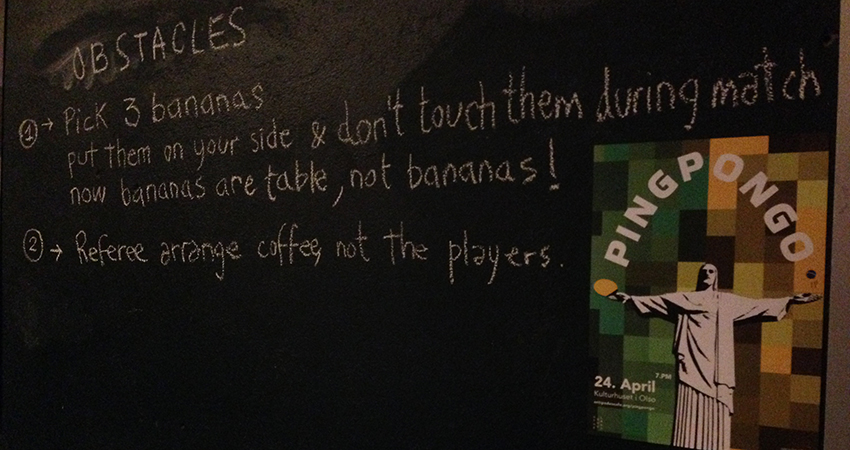 OBSTACLES
1 → Pick 3 bananas
put them on your side & don't touch them during match
now bananas are table, not bananas!
2 → Referee arrange coffee, not the players.
PINGPONGO
7.PM
24. April
Kulturhuset i Olso